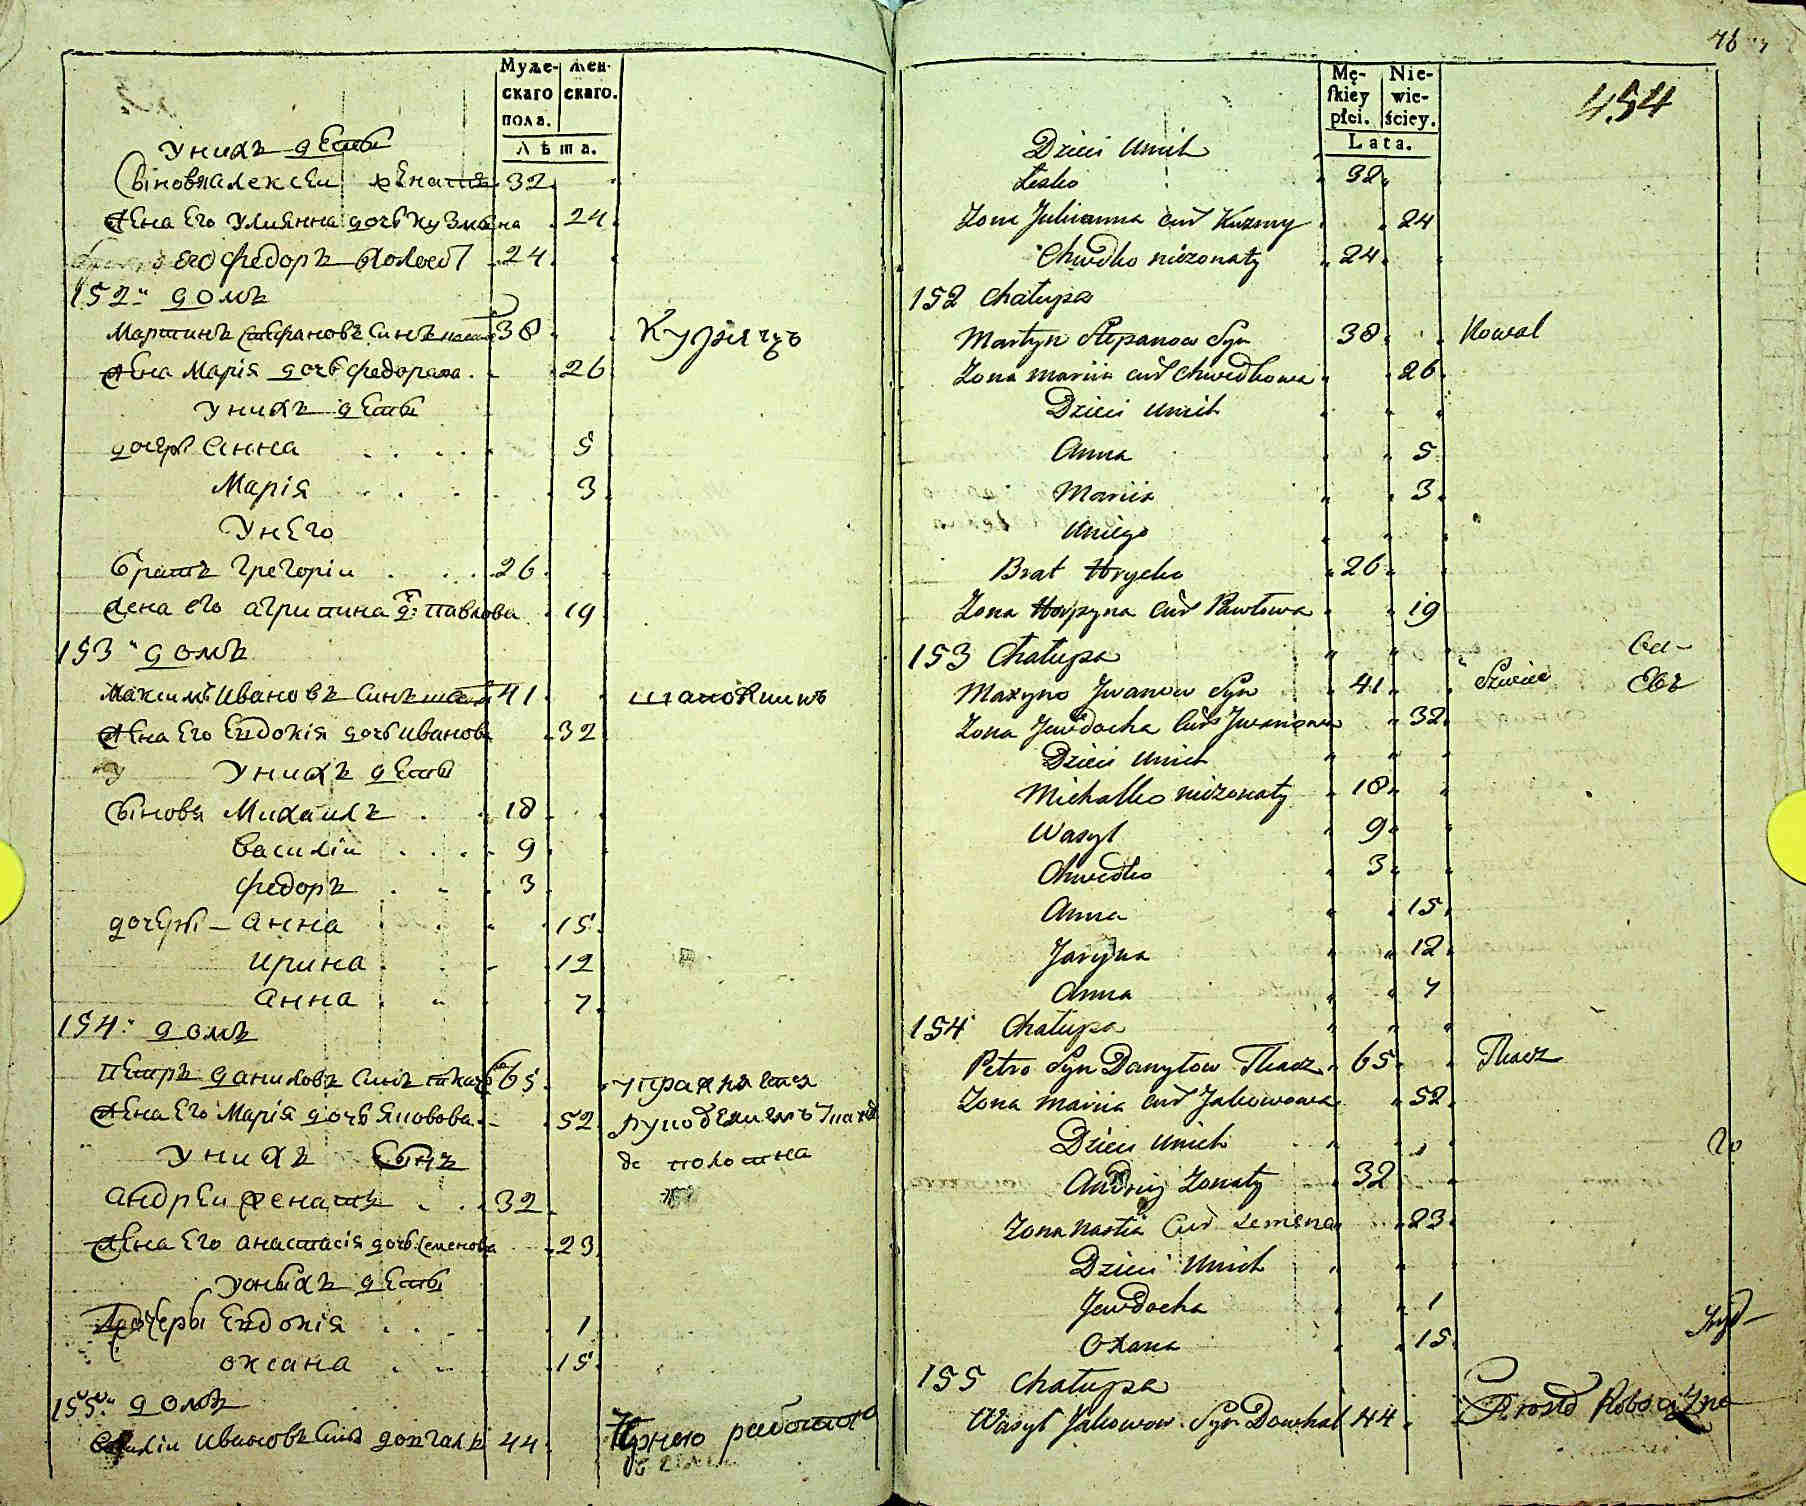 Муже-
скаго
пола.
жен-
скаго.
Лѣта.
У нихъ дети
Сыновя Алексеи женатъ 32
Жена Его Улиянна дочь Кузмина 24
Его Федоръ холост 24
152" домъ
Мартинъ Стефановъ Синъ 38
Жена Марія дочь Федорова 26
У нихъ дети
дочерѣ Анна 5
Марія 3
У него
братъ Григоріи 26
жена его Агрипина д: Павлова 19
153" домъ
Максимъ Ивановъ Синъ 41
Жена Его Евдокія дочь Иванова 32
У нихъ дети
Сыновя Михаилъ 18
Василіи 9
Федоръ 3
дочери — Анна 15
Ирина 12
Анна 7
154" домъ
Петръ Даниловъ Синъ ткачъ 65 упражняется
Жена Его Марія дочь Яковова 52 рукоделиемъ
У нихъ Сынъ полотна
Андреи женатъ 32
Жена Его Анастасія дочь Семенова 23
У оныхъ дети
Дочеры Евдокія 1
Оксана 15
155" домъ
Василіи Ивановъ Синъ Довгаль 44 работою
46
454
Mę-
skiey
płci.
Nie-
wie-
ściey.
Lata.
Dzieci Unich
Lesko 32
Zona Julianna cur Kuzmy 24
Chwedko niezonaty 24
152 Chałupa
Martyn Stepanow Syn 38 Kowal
Zona Mariia cur Chwedkowa 26
Dzieci Unich
Anna 5
Mariia 3
Uniego
Brat Hrycko 26
Zona Horpyna Cur Pawłowa 19
153 Chałupa
Maxym Jwanow Syn 41 Szwiec
Zona Jewdocha Cur Jwanowa 32
Dzieci Unich
Michałko niezonaty 18
Wasyl 9
Chwedko 3
Anna 15
Jaryna 12
Anna 7
154 Chałupa
Petro Syn Danyłow Tkacz 65 Tkacz
Zona Mariia cur Jakowowa 52
Dzieci Unich
Andrij Zonaty 32
Zona Nastia Cur Semena 23
Dzieci Unich
Jewdocha 1
Oxana 15
155 Chałupa
Wasyl Jakowow Syn Dowhal 44 Prosto Robocizne